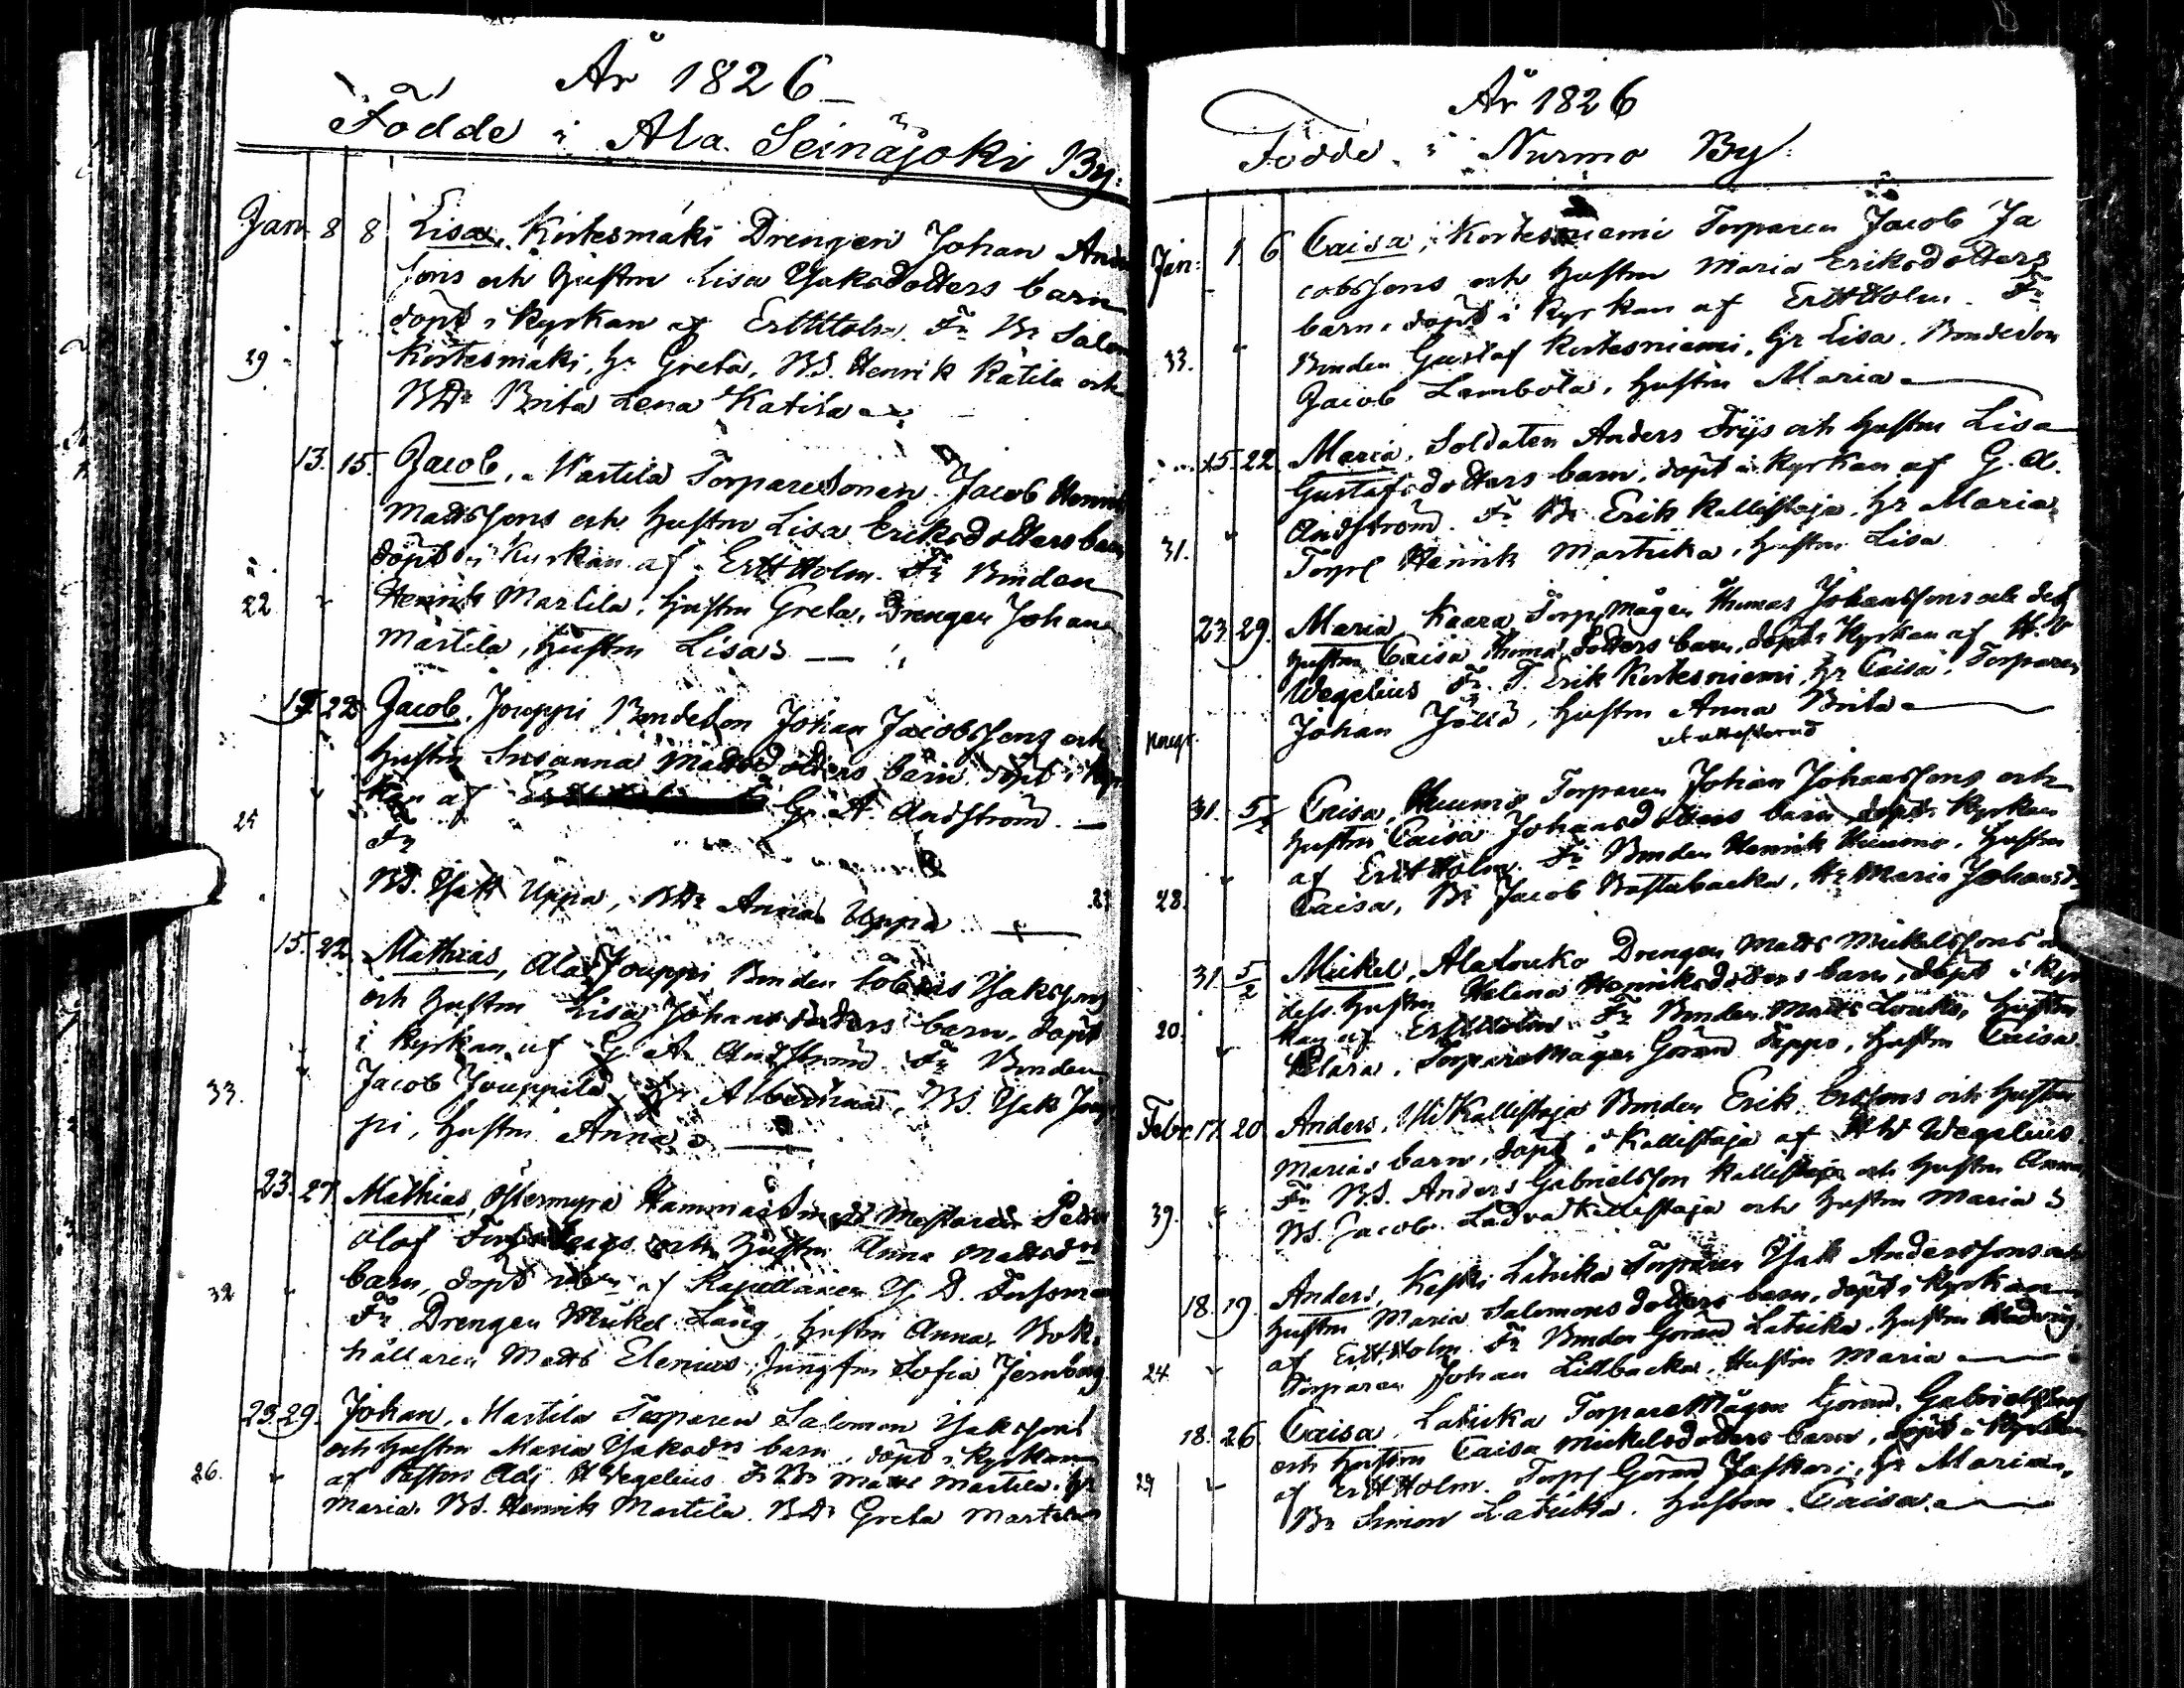 År 1826
Födde i Ala Seinäjoki By:
Jan 8 8 Lisa, Kirtesmäki Drengen Johan And
sons och Hustrn Lisa Isaksdotters barn
döpt i Kyrkan af Er Htt Holm. Fr Br Salom
29 Kirtesmäki, Hr Greta, BS. Henrik Kätilä och
BDr Brita Lena Katila
13. 15. Jacob, Martila Torparesonen Jacob Henrik
Mattssons och Hustrn Lisa Eriksdotters barn
döpt i Kyrkan af Er Htt Holm. Fr Bonden
22 Henrik Martila, Hustrn Greta, Drengen Johan
Martila, Hustrn Lisa
22 Jacob, Jouppi Bondeson Johan Jacobssons och
Hustrn Susanna Mattsdotters barn, döpt i Kyr
kan af G. A. Andström
25
Fr
BS. Isak Uppa, BDr Anna Uppa
15. 22 Mathias, Ala Jouppi Bonden Tobias Isakssons
och Hustrn Lisa Johansdotters barn, döpt
i Kyrkan af G. A. Andström. Fr Bonden
33. Jacob Jouppila, Hr Albertina, BS. Isak Joup
pi, Hustrn Anna
23. 27. Mathias, Östermyra Hammarsmeds Mästaren Petter
Olof och Hustrn Anna Mattsdrs
barn, döpt af Kapellanen
32 Fr Drengen Mickel Lång, Hustrn Anna, Bok-
hållaren Matts Elenius, Jungfrn Sofia Jernberg
23. 29. Johan, Martila Torparen Salomon Isakssons
och Hustrn Maria Isaksdrs barn, döpt i Kyrkan
26. af Pastors Adj. H Wegelius Fr Br Matts Martila, Hr
Maria, BS. Henrik Martila, BDr Greta Martila
År 1826
Födde i Nurmo By:
Jan: 1. 6 Caisa, Kortesniemi Torparen Jacob Ja
cobssons och Hustrn Maria Eriksdotters
barn, döpt i Kyrkan af Er Htt Holm. Fr
33. Bonden Gustaf Kortesniemi, Hr Lisa, Bondeson
Jacob Lambola, Hustrn Maria
15. 22. Maria, Soldaten Anders Frijs och Hustrn Lisa
Gustafsdotters barn, döpt i Kyrkan af G. A.
Andström. Fr Br Erik Kallistaja, Hr Maria
31. Torp Henrik Martikka, Hustrn Lisa
23. 29. Maria Kaara Torp Mågen Thomas Johanssons och dess
Hustrn Caisa Thomædotters barn, döpt i Kyrkan af H. W
Wegelius Fr. T. Erik Kortesniemi, Hr Caisa, Torparen
Johan Jållä, Hustrn Anna Brita
31. 5/2 Caisa, Huumo Torparen Johan Johanssons och
Hustrn Caisa Johansdotters barn, döpt i Kyrkan
af Er Htt Holm. Fr Bonden Henrik Huumo, Hustrn
28. Caisa, Br Jacob Bastubacka, Hr Maria Johansd
31 5/2 Mickel, Alalouko Drengen Matts Mickelssons
dess Hustrn Helena Henriksdotters barn, döpt i Kyr
20. kan af Er Htt Holm. Fr Bonden Matts Louko, Hustrn
Klara, Torpare Mågen Göran Seppo, Hustrn Caisa
Febr. 17. 20. Anders, Yli Kallistaja Bonden Erik Erssons och Hustrn
Marias barn, döpt i Kallistaja af H W Wegelius.
Fr BS. Anders Gabrielsson Kallistaja och Hustrn Anna
39. BS. Jacob Ladvakallistaja och Hustrn Maria
18. 19. Anders, Keski Latikka Torparen Isak Anderssons och
Hustrn Maria Salomonsdotters barn, döpt i Kyrkan
af Er Htt Holm. Fr Bonden Göran Latikka, Hustrn Hedvig
24 Torparen Johan Lillbacka, Hustrn Maria
18. 26. Caisa, Latikka Torpare Mågen Göran Gabrielssons
och Hustrn Caisa Mickelsdotters barn, döpt i Kyrkan
af Er Htt Holm. Torp Göran Jaskari, Hr Maria,
Br Simon Latikka, Hustrn Caisa.